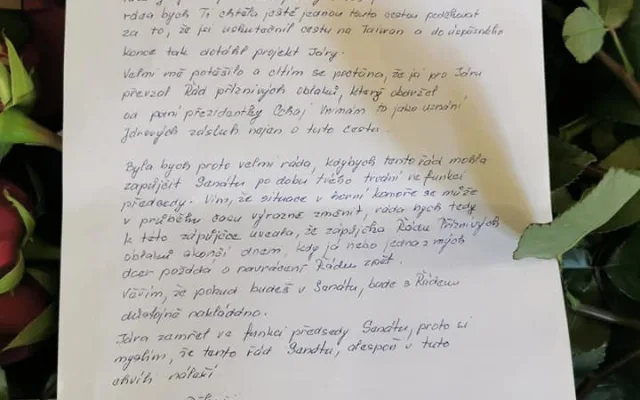 ráda bych Ti chtěla ještě jednou touto cestou poděkovat
za to, že jsi uskutečnil cestu na Taiwan a do úspěšného
konce tak dotáhl projekt Járy.
Velmi mě potěšilo a cítím se poctěna, že jsi pro Járu
převzal Řád příznivých oblaků, který obdržel
od paní prezidentky Cchaj. Vnímám to jako uznání
Járových zásluh nejen o tuto cestu.
Byla bych proto velmi ráda, kdybych tento řád mohla
zapůjčit Senátu po dobu tvého trvání ve funkci
předsedy. Vím, že situace v horní komoře se může
v průběhu času výrazně změnit, ráda bych tedy
k této zápůjčce uvedla, že zápůjčka Řádu Příznivých
oblaků skončí dnem, kdy já nebo jedna z mých
dcer požádá o navrácení Řádu zpět.
Věřím, že pokud budeš v Senátu, bude s Řádem
důstojně nakládáno.
Jára zemřel ve funkci předsedy Senátu, proto si
myslím, že tento řád Senátu, alespoň v tuto
chvíli náleží